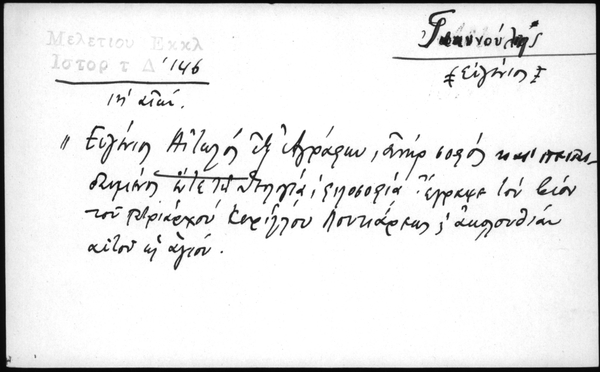 Μελετίου Εκκλ
Ιστορ τ Δ' 146
Γιαννούλης
Εὐγένιος
ιη' αἰών.
" Εὐγένιος Αἰτωλός ἐξ Ἀγράφων, ἀνήρ σοφός καί πεπαι-
δευμένος ἔν τε τῇ θεολογίᾳ, φιλοσοφίᾳ ἔγραψε τόν βίον
τοῦ πατριάρχου Κυρίλλου Λουκάρεως, ἀκολουθίαν
αὐτοῦ ὡς ἁγίου.